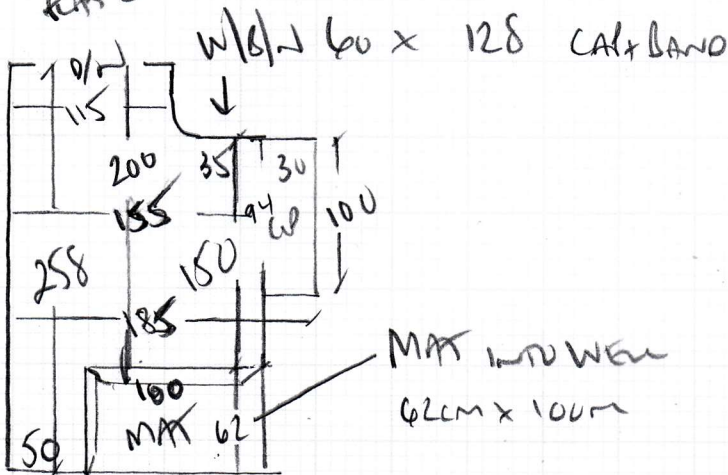 W/B/N 60 x 128 CAP + BAND
D/W
115
200 35 30
155 94 100
258 150
185
100
MAT 62
50
MAT INTO WELL
62CM x 100M